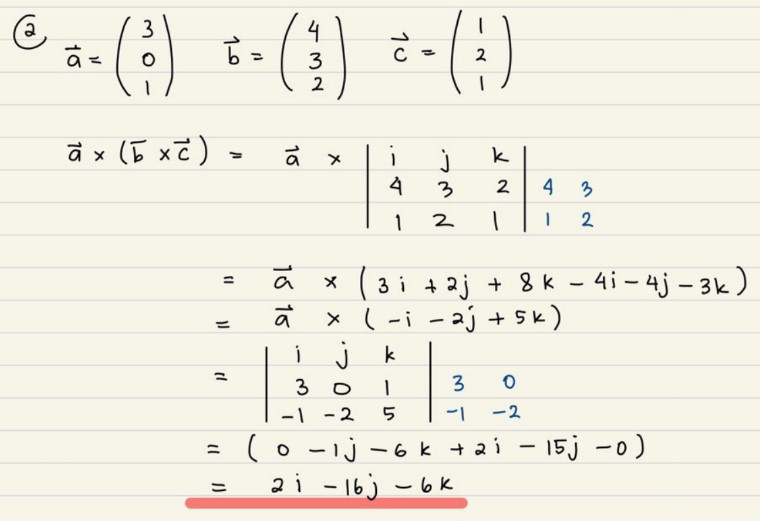 ② a⃗ = (3 0 1) b⃗ = (4 3 2) c⃗ = (1 2 1)
a⃗ × (b̄ × c⃗) = a⃗ × | i j k |
4 3 2 | 4 3
1 2 1 | 1 2
= a⃗ × (3i + 2j + 8k - 4i - 4j - 3k)
= a⃗ × (-i - 2j + 5k)
= | i j k |
3 0 1 | 3 0
-1 -2 5 | -1 -2
= (0 - 1j - 6k + 2i - 15j - 0)
= 2i - 16j - 6k